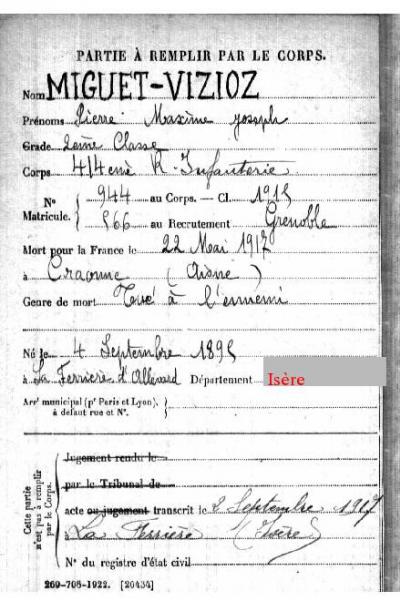 PARTIE À REMPLIR PAR LE CORPS.
Nom MIGUET-VIZIOZ
Prénoms Pierre Maxime Joseph
Grade 2ème Classe
Corps 414eme R. Infanterie
N° 944 au Corps. — Cl. 1915
Matricule. 566 au Recrutement Grenoble
Mort pour la France le 22 Mai 1917
à Craonne (Aisne)
Genre de mort Tué à l'ennemi
Né le 4 Septembre 1895
à La Ferrière d'Allevard Département Isère
Arrt municipal (pr Paris et Lyon),
à défaut rue et N°.
Cette partie
n'est pas à remplir
par le Corps.
Jugement rendu le
par le Tribunal de
acte ou jugement transcrit le 2 Septembre 1917
à La Ferrière (Isère)
N° du registre d'état civil
269-708-1922. [26434]